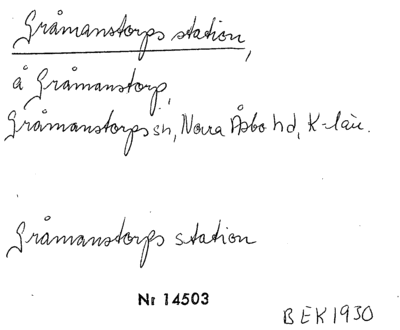 Gråmanstorps station,
å Gråmanstorp,
Gråmanstorps sn, Norra Åsbo hd, K-län.
Gråmanstorps station
Nr 14503
BEK1930